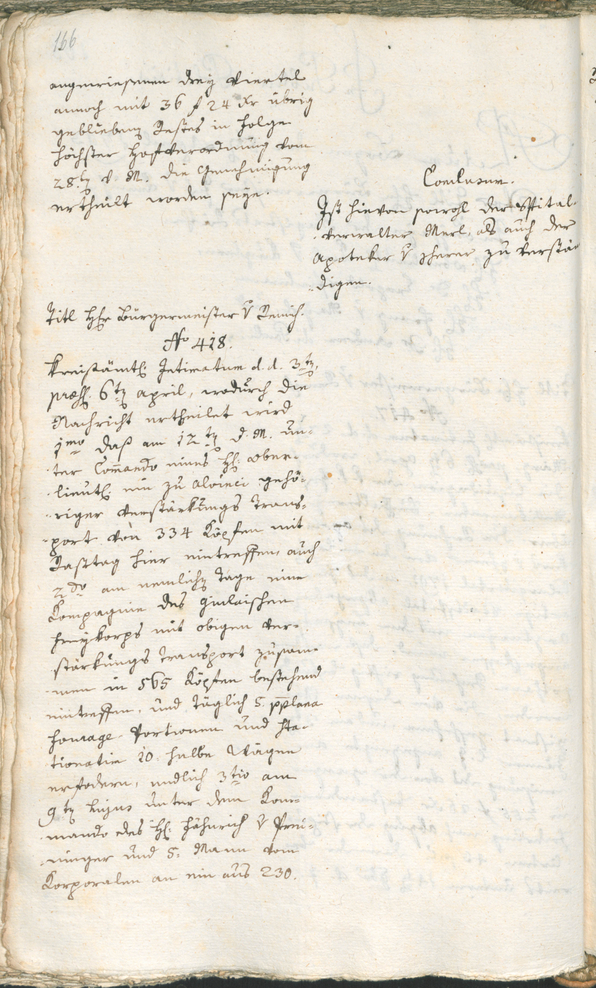 166
angewiesenen drey Viertel
annoch mit 36 f 24 Kr übrig
gebliebene Restes in Folge
höchster Hofverordnung vom
28.ten v. M. die Genehmigung
ertheilt worden seye.
Conclusum.
Ist hievon sowohl der Spital-
verwalter Merl, als auch der
Apoteker v zu verstän-
digen.
Titl Hr Bürgermeister v
No 418.
Kreisämtl. Intimatum d. d. 3ten,
praes. 6ten April, wodurch die
Nachricht ertheilet wird
1mo daß am 12ten d. M. un-
ter Comando eines H. Ober-
lieut. ein zu gehö-
riger Verstärkungs Trans-
port von 334 Köpfen mit
Rasttag hier eintreffen, auch
2do am nemlichen Tage eine
Kompagnie des Giulaischen
Freykorps mit obigen Ver-
stärkungs Transport zusam-
men in 565 Köpfen bestehend
eintreffen, und täglich 5
fourage Portionen und
10 halbe Wägen
erfodern, endlich 3tio am
9ten hujus unter dem Kom-
mando des H. Fähnrich v Preu-
ninger und 5 Mann vom
Korporalen an ein aus 230.